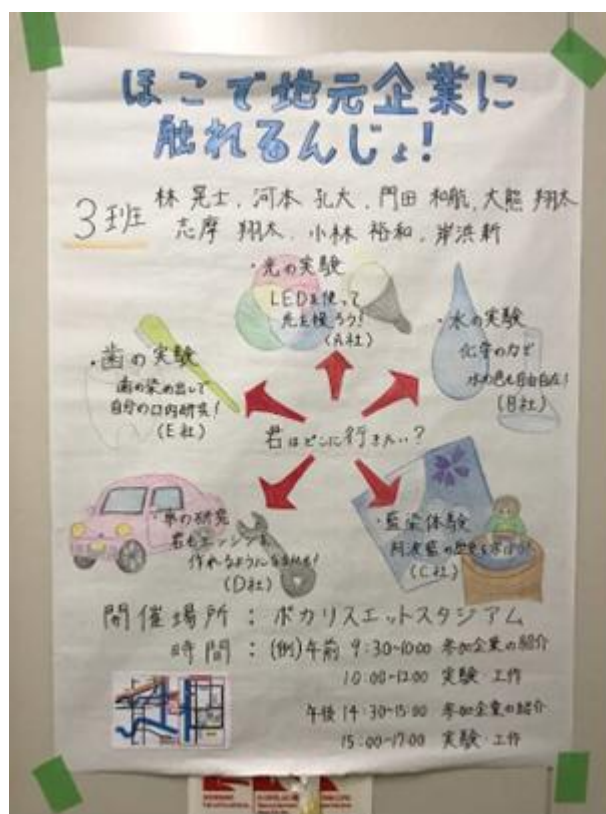 ほこで地元企業に
触れるんじょ!
3班
林 晃士, 河本 孔大, 門田 和航, 大熊 翔太
志摩 翔太, 小林 裕和, 岸浜 新
・光の実験
LEDを使って
光を操ろう!
(A社)
・水の実験
化学の力で
水の色も自由自在!
(B社)
・歯の実験
歯の染め出しで
自分の口内研究!
(E社)
君はどこに行きたい?
・車の研究
君もエンジンを
作れるようになるかも!
(D社)
・藍染体験
阿波藍の歴史を学ぼう!
(C社)
開催場所 : ポカリスエットスタジアム
時間 : (例)午前 9:30~10:00 参加企業の紹介
10:00~12:00 実験・工作
午後 14:30~15:00 参加企業の紹介
15:00~17:00 実験・工作